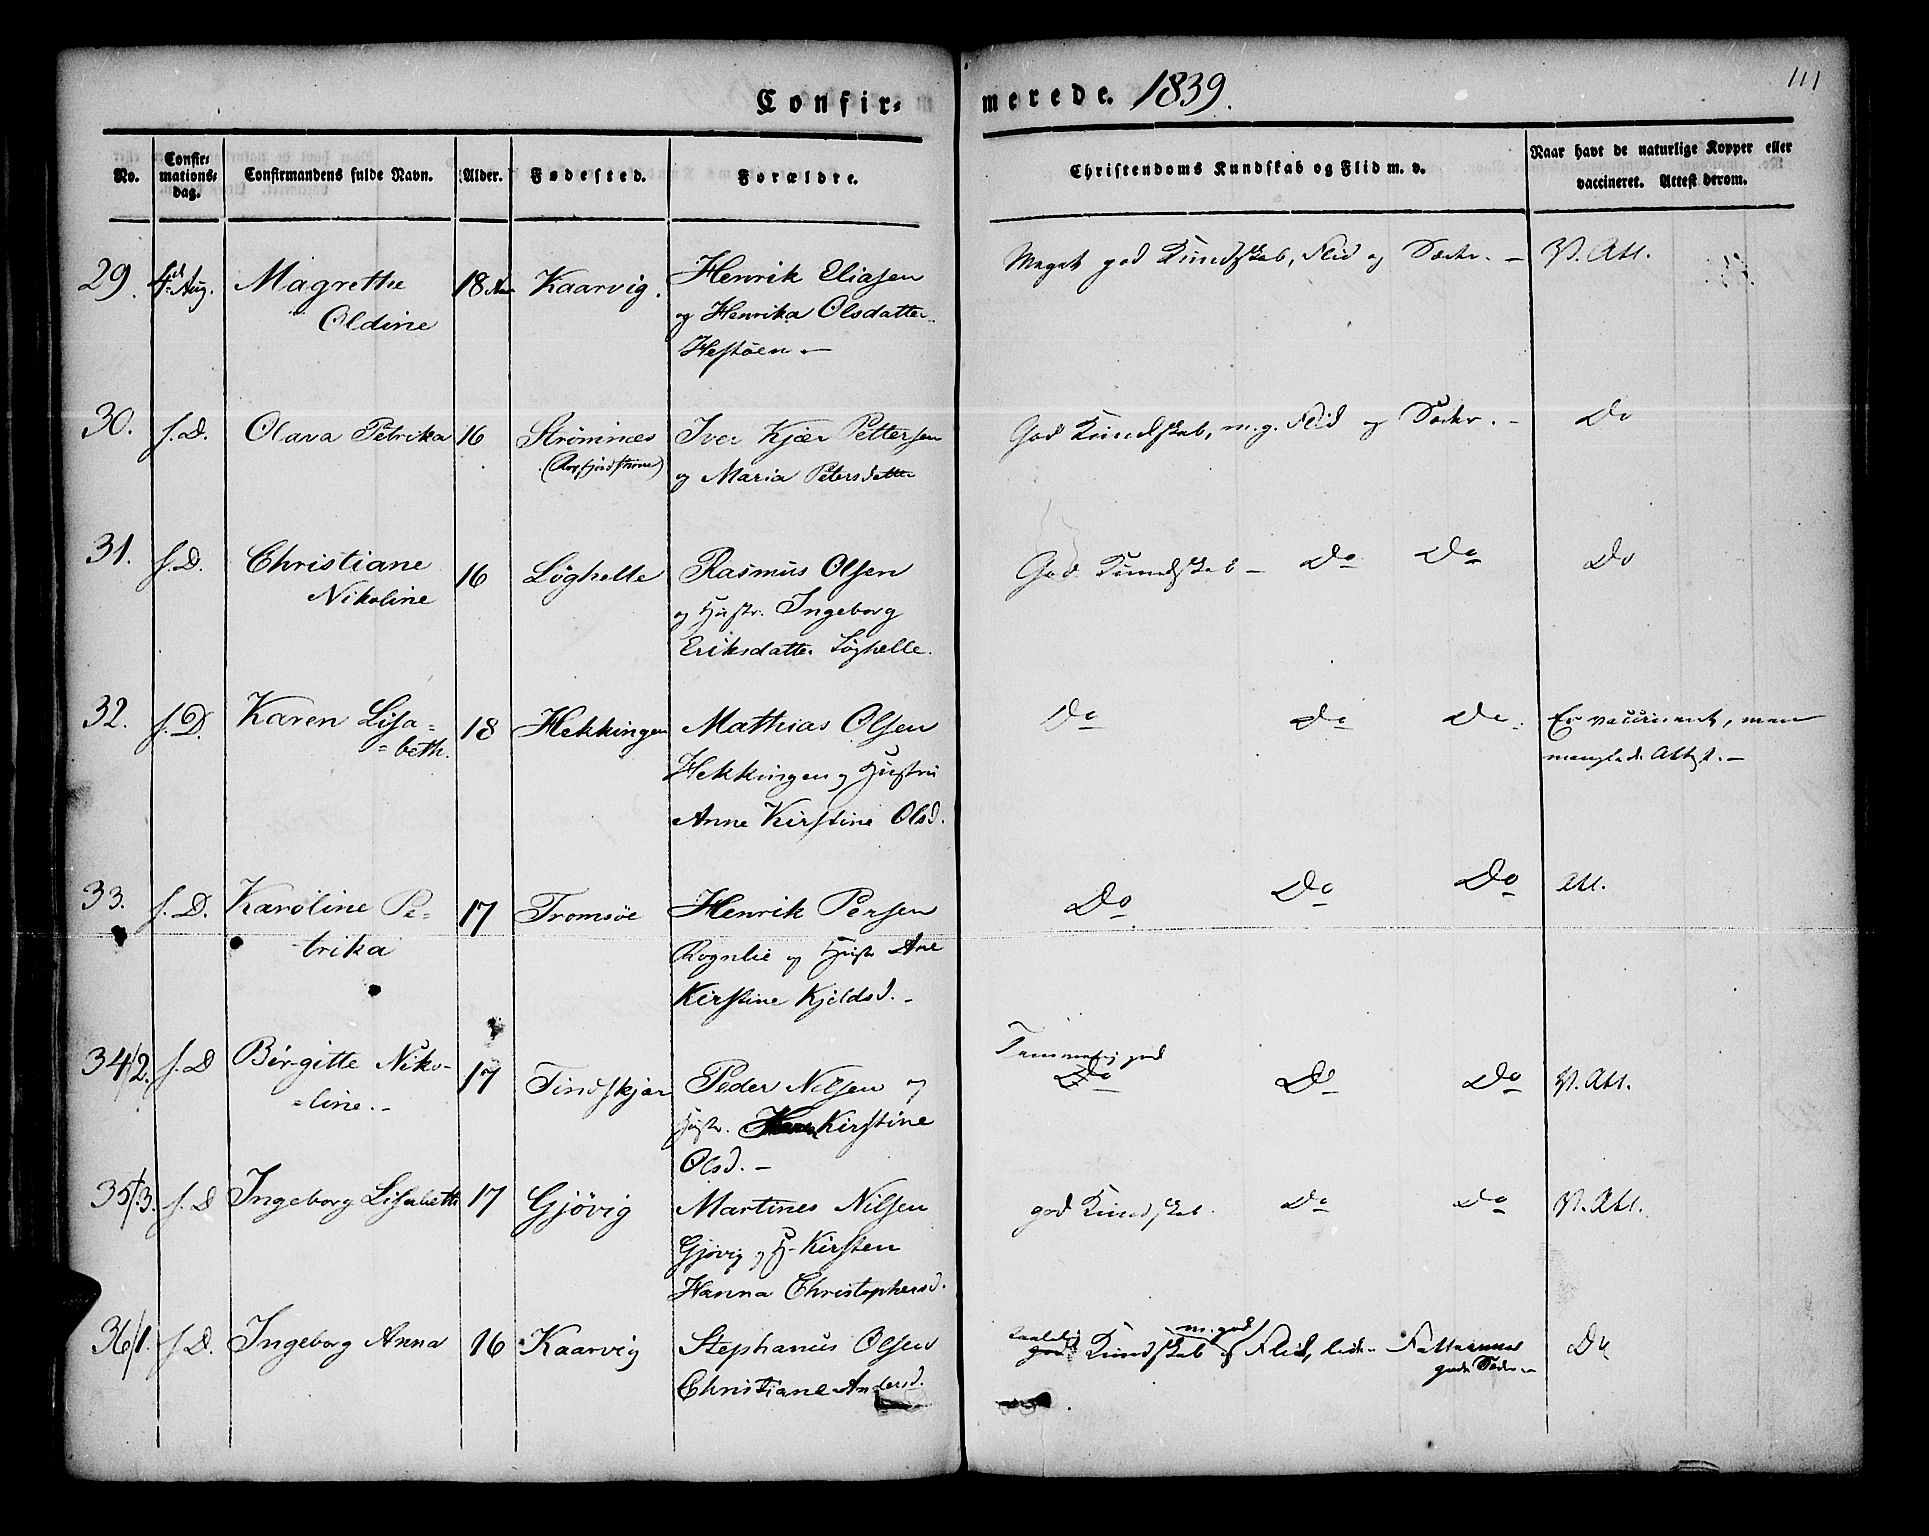 Confir-merede. 1839.
111
No.
Confir-
mations-
dag.
Confirmandens fulde Navn.
Alder.
Fødested.
Forældre.
Christendoms Kundskab og Flid m. v.
Naar havt de naturlige Kopper eller
vaccineret. Attest derom.
29. 4d Aug. Magrethe 18 Kaarvig. Henrik Eliasen Meget god Kundskab, Flid og Sæder. - V. Att.
Oldine og Henrika Olsdatter
Hestøen -
30. s. D. Olava Petrika 16 Strømnes Iver Kjær Pettersen God Kundskab, m. g. Flid og Sæder. - Do
og Maria Petersdatter
31. s. D. Christiane 16 Løghelle Rasmus Olsen God Kundskab - Do Do Do
Nikoline og Hustr. Ingeborg
Eriksdatter Løghelle.
32. s. D. Karen Lisa= 18 Hekkingen Mathias Olsen Do Do Do. Er vaccineret, men
=beth. Hekkingen og Hustru manglede Attest. -
Anne Kirstine Olsd.
33. s. D. Karoline Pe- 17 Tromsøe Henrik Persen Do Do Do Att.
trika Rognlie og Hustr Ane
Kirstine Kjeldsd. -
34/2. s. D Birgitte Niko- 17 Tindskjær Peder Nilsen og Temmelig god Do Do Do V. Att.
=line. - Hustr. Kirstine
Olsd. -
35/3. s. D Ingeborg Lisabeth 17 Gjövig Martines Nilsen god Kundskab Do Do V. Att.
Gjövig og H. Kirsten
Hanna Christophersd.
36/1. s. D. Ingeborg Anna 16 Kaarvig Stephanus Olsen god Kundskab m. god Flid, Do
Christiane Andersd. gode Sæder -